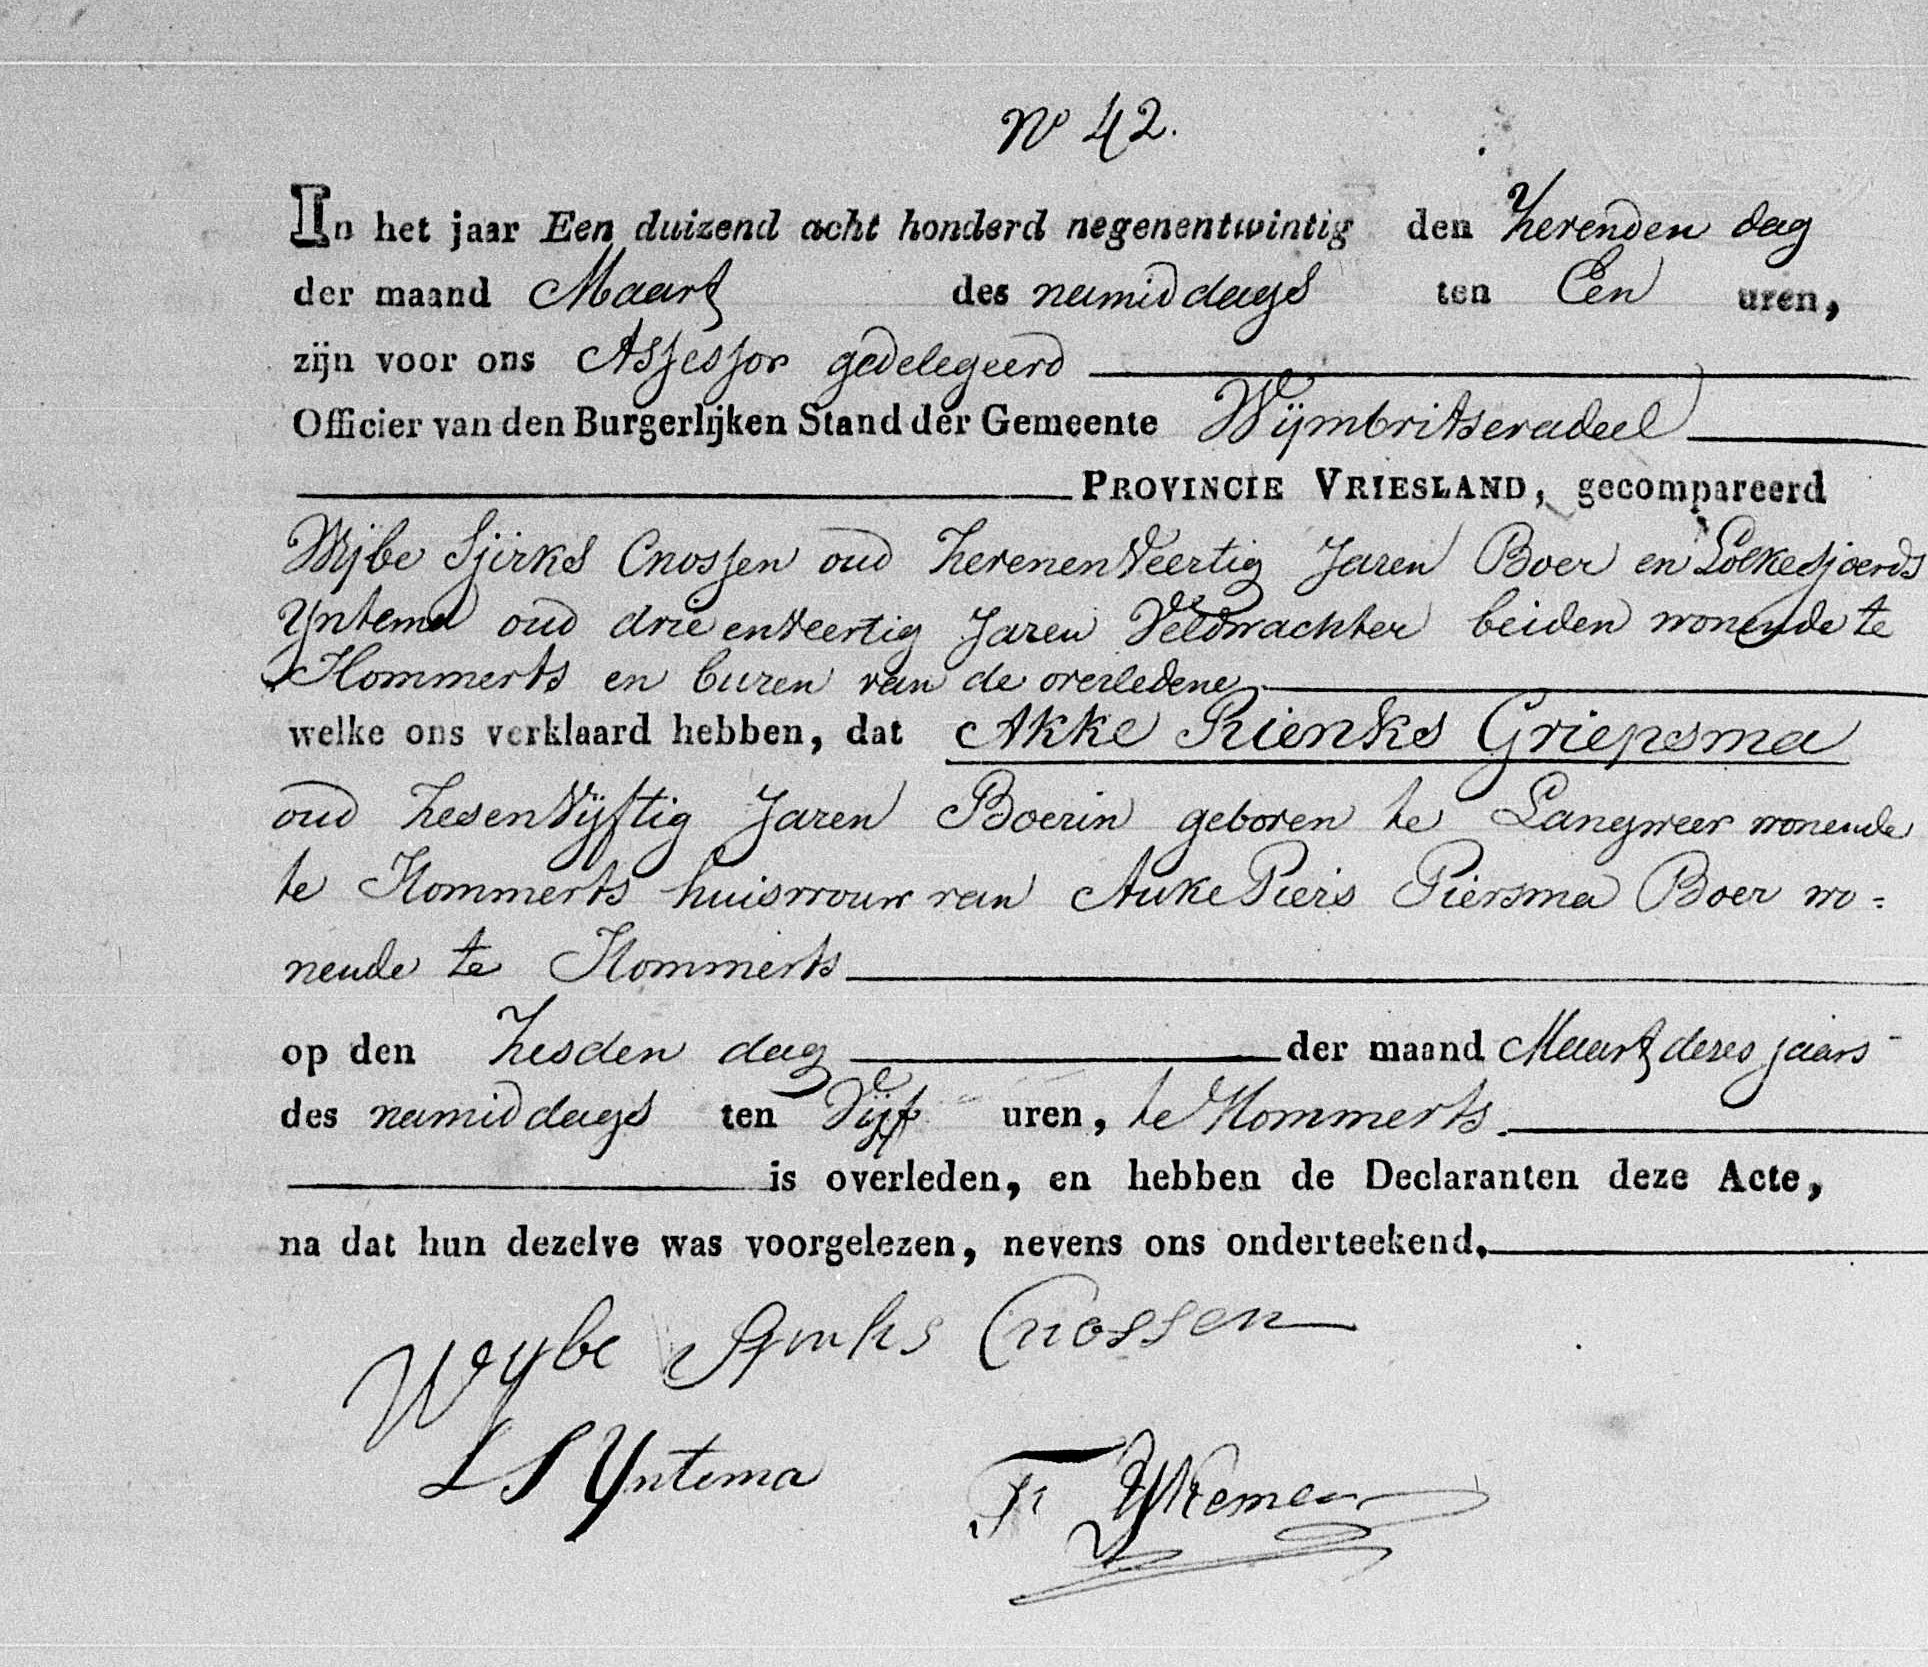 No 42.
In het jaar Een duizend acht honderd negenentwintig den Zevenden dag
der maand Maart des namiddags ten Een uren,
zijn voor ons Assessor gedelegeerd
Officier van den Burgerlijken Stand der Gemeente Wijmbritseradeel
PROVINCIE VRIESLAND, gecompareerd
Wijbe Sjirks Cnossen oud Zevenenveertig Jaren Boer en Lolke Sjoerds
Yntema oud drieenveertig Jaren Veldwachter beiden wonende te
Hommerts en buren van de overledene
welke ons verklaard hebben, dat Akke Rienks Griepsma
oud Zesenvijftig Jaren Boerin geboren te Langweer wonende
te Hommerts huisvrouw van Auke Piers Piersma Boer wo=
nende te Hommerts
op den Zesden dag der maand Maart dezes jaars
des namiddags ten Vijf uren, te Hommerts.
is overleden, en hebben de Declaranten deze Acte,
na dat hun dezelve was voorgelezen, nevens ons onderteekend.
Wybe Sjirks Cnossen
L S Yntema